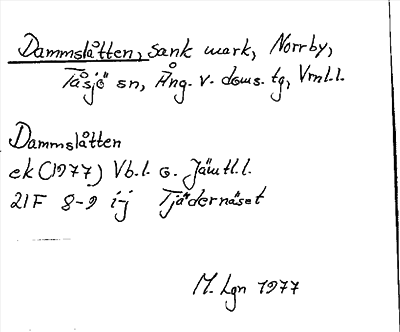 Dammslåtten, sank mark, Norrby,
Tåsjö sn, Ång. v. doms. tg, Vrnl.l.
Dammslåtten
ek (1977) Vb.l. o. Jämtl.l.
21F 8-9 ij Tjädernäset
M. Lgn 1977